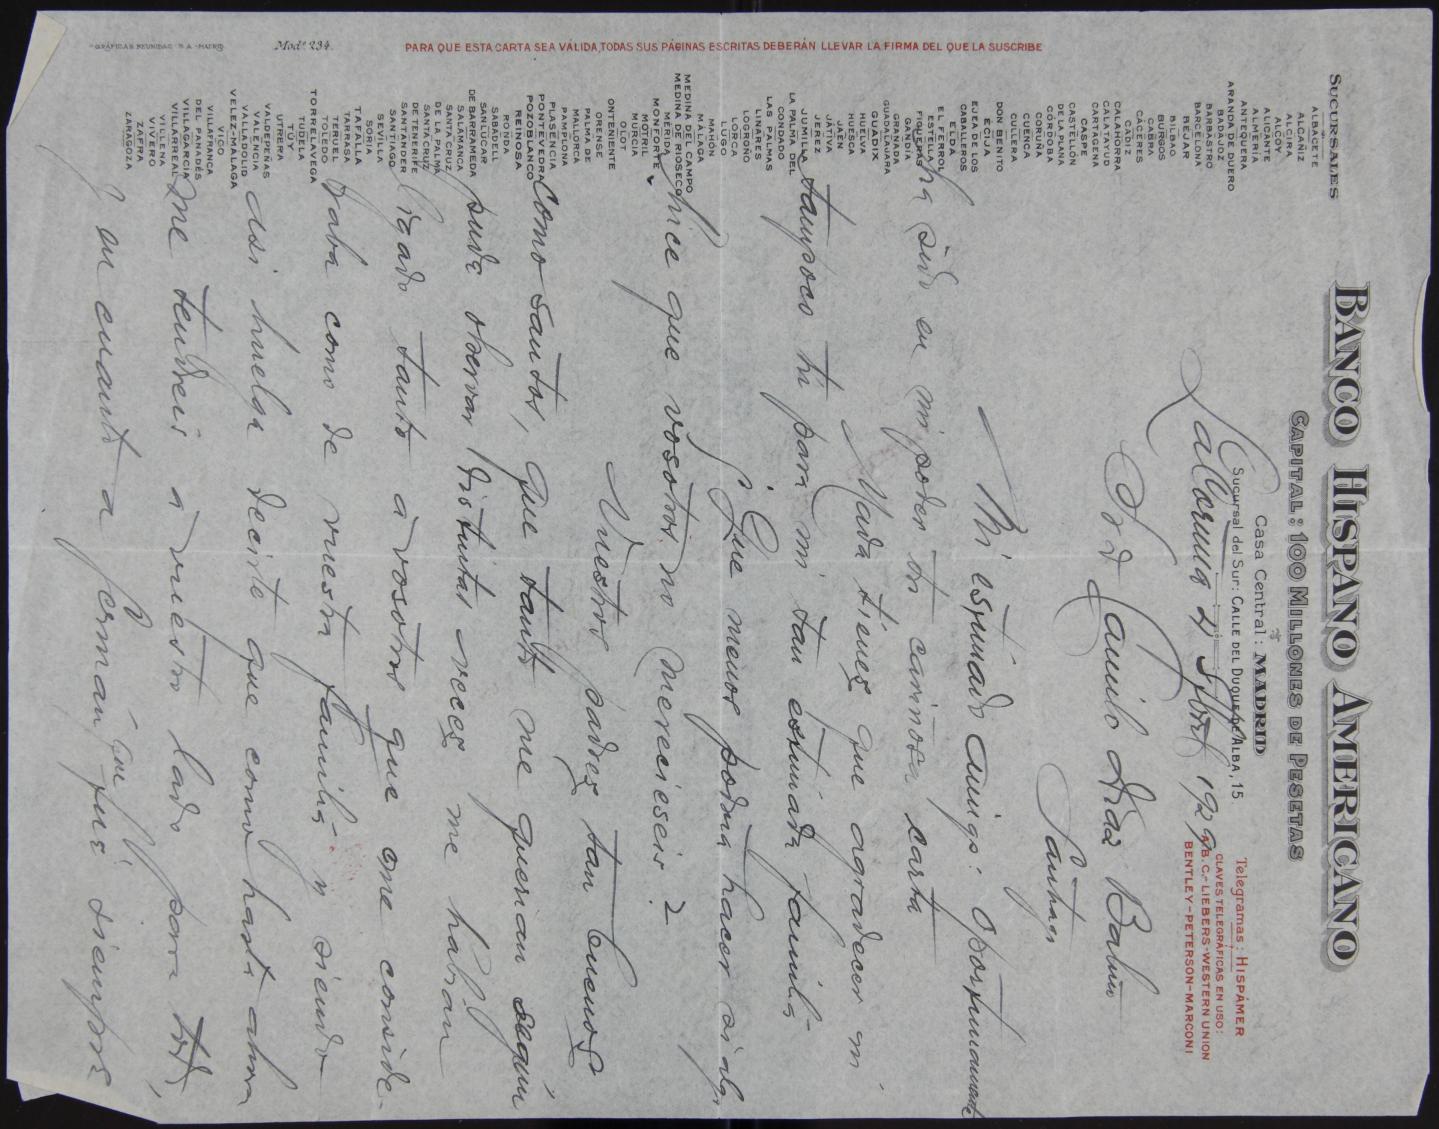 BANCO HISPANO AMERICANO
CAPITAL: 100 MILLONES DE PESETAS
Casa Central: MADRID
Sucursal del Sur: CALLE DEL DUQUE DE ALBA, 15
Telegramas: HISPAMER
CLAVES TELEGRÁFICAS EN USO:
A.B.C.-LIEBERS-WESTERN UNION
BENTLEY-PETERSON-MARCONI
SUCURSALES
ALBACETE
ALCAÑIZ
ALCIRA
ALCOY
ALICANTE
ALMERÍA
ANTEQUERA
ARANDA DE DUERO
BADAJOZ
BARBASTRO
BARCELONA
BEJAR
BILBAO
BURGOS
CABRA
CÁCERES
CÁDIZ
CALAHORRA
CALATAYUD
CARTAGENA
CASPE
CASTELLÓN
DE LA PLANA
CÓRDOBA
CORUÑA
CUENCA
CULLERA
DON BENITO
ECIJA
EJEA DE LOS
CABALLEROS
ELDA
EL FERROL
ESTELLA
FIGUERAS
GANDÍA
GRANADA
GUADALAJARA
GUADIX
HUELVA
HUESCA
JAÉN
JÁTIVA
JEREZ
JUMILLA
LA PALMA DEL
CONDADO
LAS PALMAS
LINARES
LOGROÑO
LORCA
LUGO
MAHÓN
MÁLAGA
MEDINA DEL CAMPO
MEDINA DE RIOSECO
MÉRIDA
MONFORTE
MOTRIL
MURCIA
OLOT
ONTENIENTE
ORENSE
PALMA DE
MALLORCA
PAMPLONA
PLASENCIA
PONTEVEDRA
POZOBLANCO
REINOSA
RONDA
SABADELL
SANLUCAR
DE BARRAMEDA
SALAMANCA
SANTA CRUZ
DE LA PALMA
SANTA CRUZ
DE TENERIFE
SANTANDER
SANTIAGO
SEVILLA
SORIA
TAFALLA
TARRASA
TERUEL
TOLEDO
TORRELAVEGA
TUDELA
TÚY
UTRERA
VALDEPEÑAS
VALENCIA
VALLADOLID
VELEZ-MALAGA
VIGO
VILLAFRANCA
DEL PANADÉS
VILLAGARCÍA
VILLARREAL
VILLENA
VIVERO
ZAFRA
ZARAGOZA
La Coruña 2 Sbre 1929
Sr D Camilo Díaz Baliño
Santiago
Mi estimado amigo: Oportunamente
ha sido en mi poder tu cariñosa carta
Nada tienes que agradecer ni
tampoco tu para mi tan estimada familia
¿Que menos podria hacer si algo
hice que vosotros no merecieseis?
Vuestros padres tan buenos
como santos, que tanto me querian segun
pude observar distintas veces me habian
ligado tanto a vosotros que me conside-
raba como de vuestra familia y siendo
asi huelga decirte que como hasta ahora
me tendreis a vuestro lado para todo,
y en cuanto a Fermán que fué siempre
PARA QUE ESTA CARTA SEA VÁLIDA, TODAS SUS PÁGINAS ESCRITAS DEBERÁN LLEVAR LA FIRMA DEL QUE LA SUSCRIBE
Mod.º 234.
GRÁFICAS REUNIDAS S.A.-MADRID